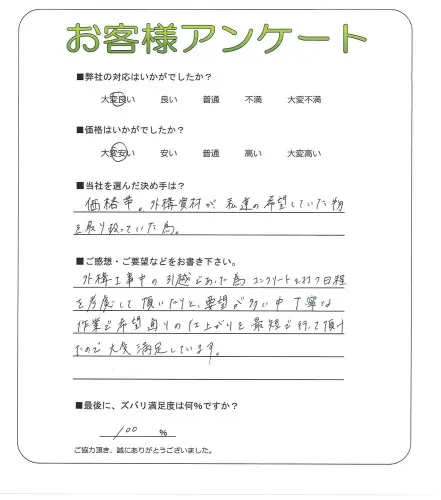 お客様アンケート
■弊社の対応はいかがでしたか？
大変良い 良い 普通 不満 大変不満
■価格はいかがでしたか？
大変安い 安い 普通 高い 大変高い
■当社を選んだ決め手は？
価格帯。外構資材が私達の希望していた物
を取り扱っていた為。
■ご感想・ご要望などをお書き下さい。
外構工事中の引越であった為コンクリートを打つ日程
を考慮して頂いたりと、要望が多い中丁寧な
作業で希望通りの仕上がりを最短で行って頂け
たので大変満足しています。
■最後に、ズバリ満足度は何%ですか？
100 %
ご協力頂き、誠にありがとうございました。